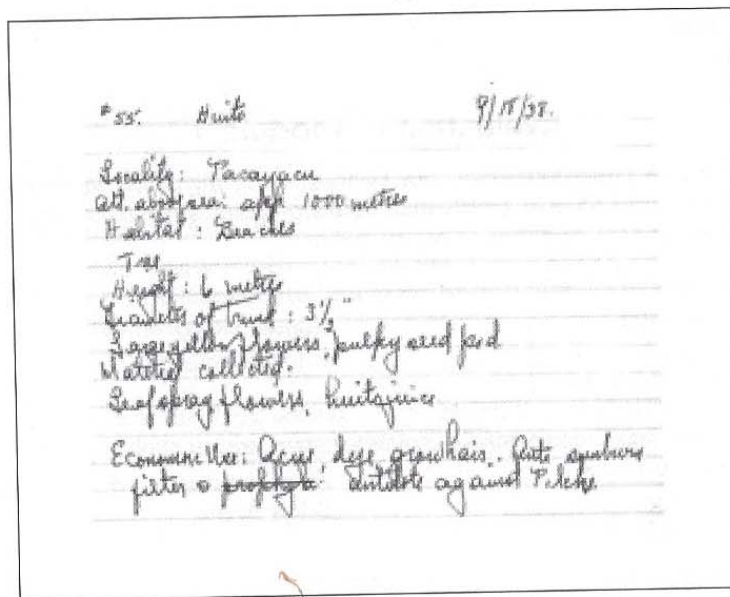 #55. Huito 9/15/38.
Locality: Pacayacu
Alt. above sea: app 1000 metres
Habitat: Beaches
Tree
Height: 6 metres
Diameter of trunk: 3½"
Large yellow flowers, pulpy seed pod
Material collected:
Leaf spray flowers, huito juice
Economic Use: dye, grow hair. sunburn
antidote against